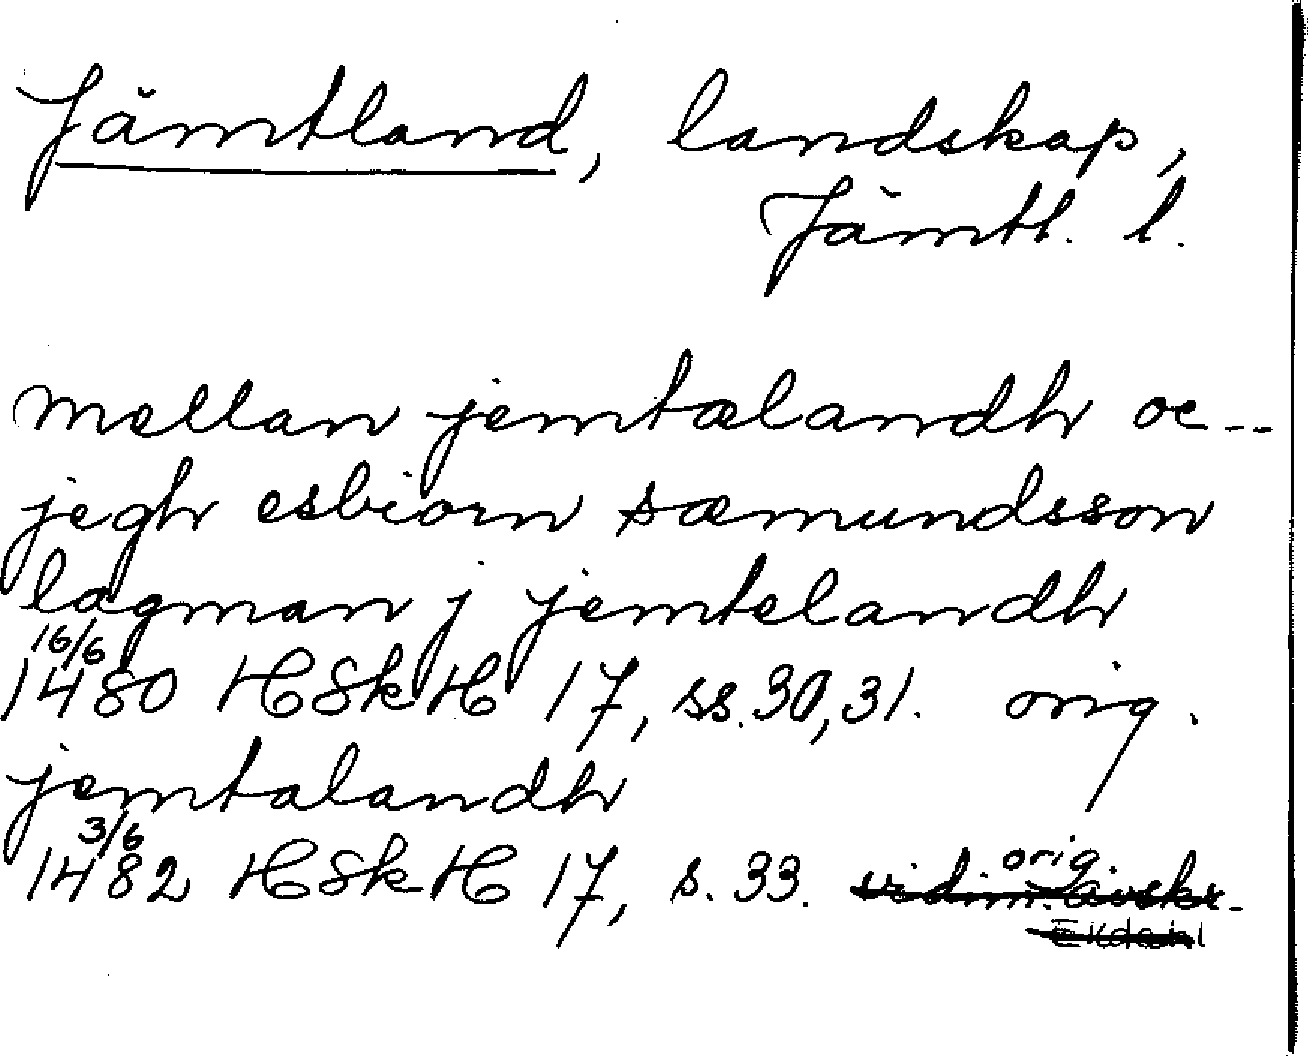 Jämtland, landskap,
Jämtl. l.
mellan jemtælandh oc --
jegh esbiorn sæmundsson
lagman j jemtelandh
16/6
1480 HSkH 17, ss. 30, 31. orig.
jemtalandh
3/6
1482 HSkH 17, s. 33. orig.
vidim. avskr.
Ekdahl